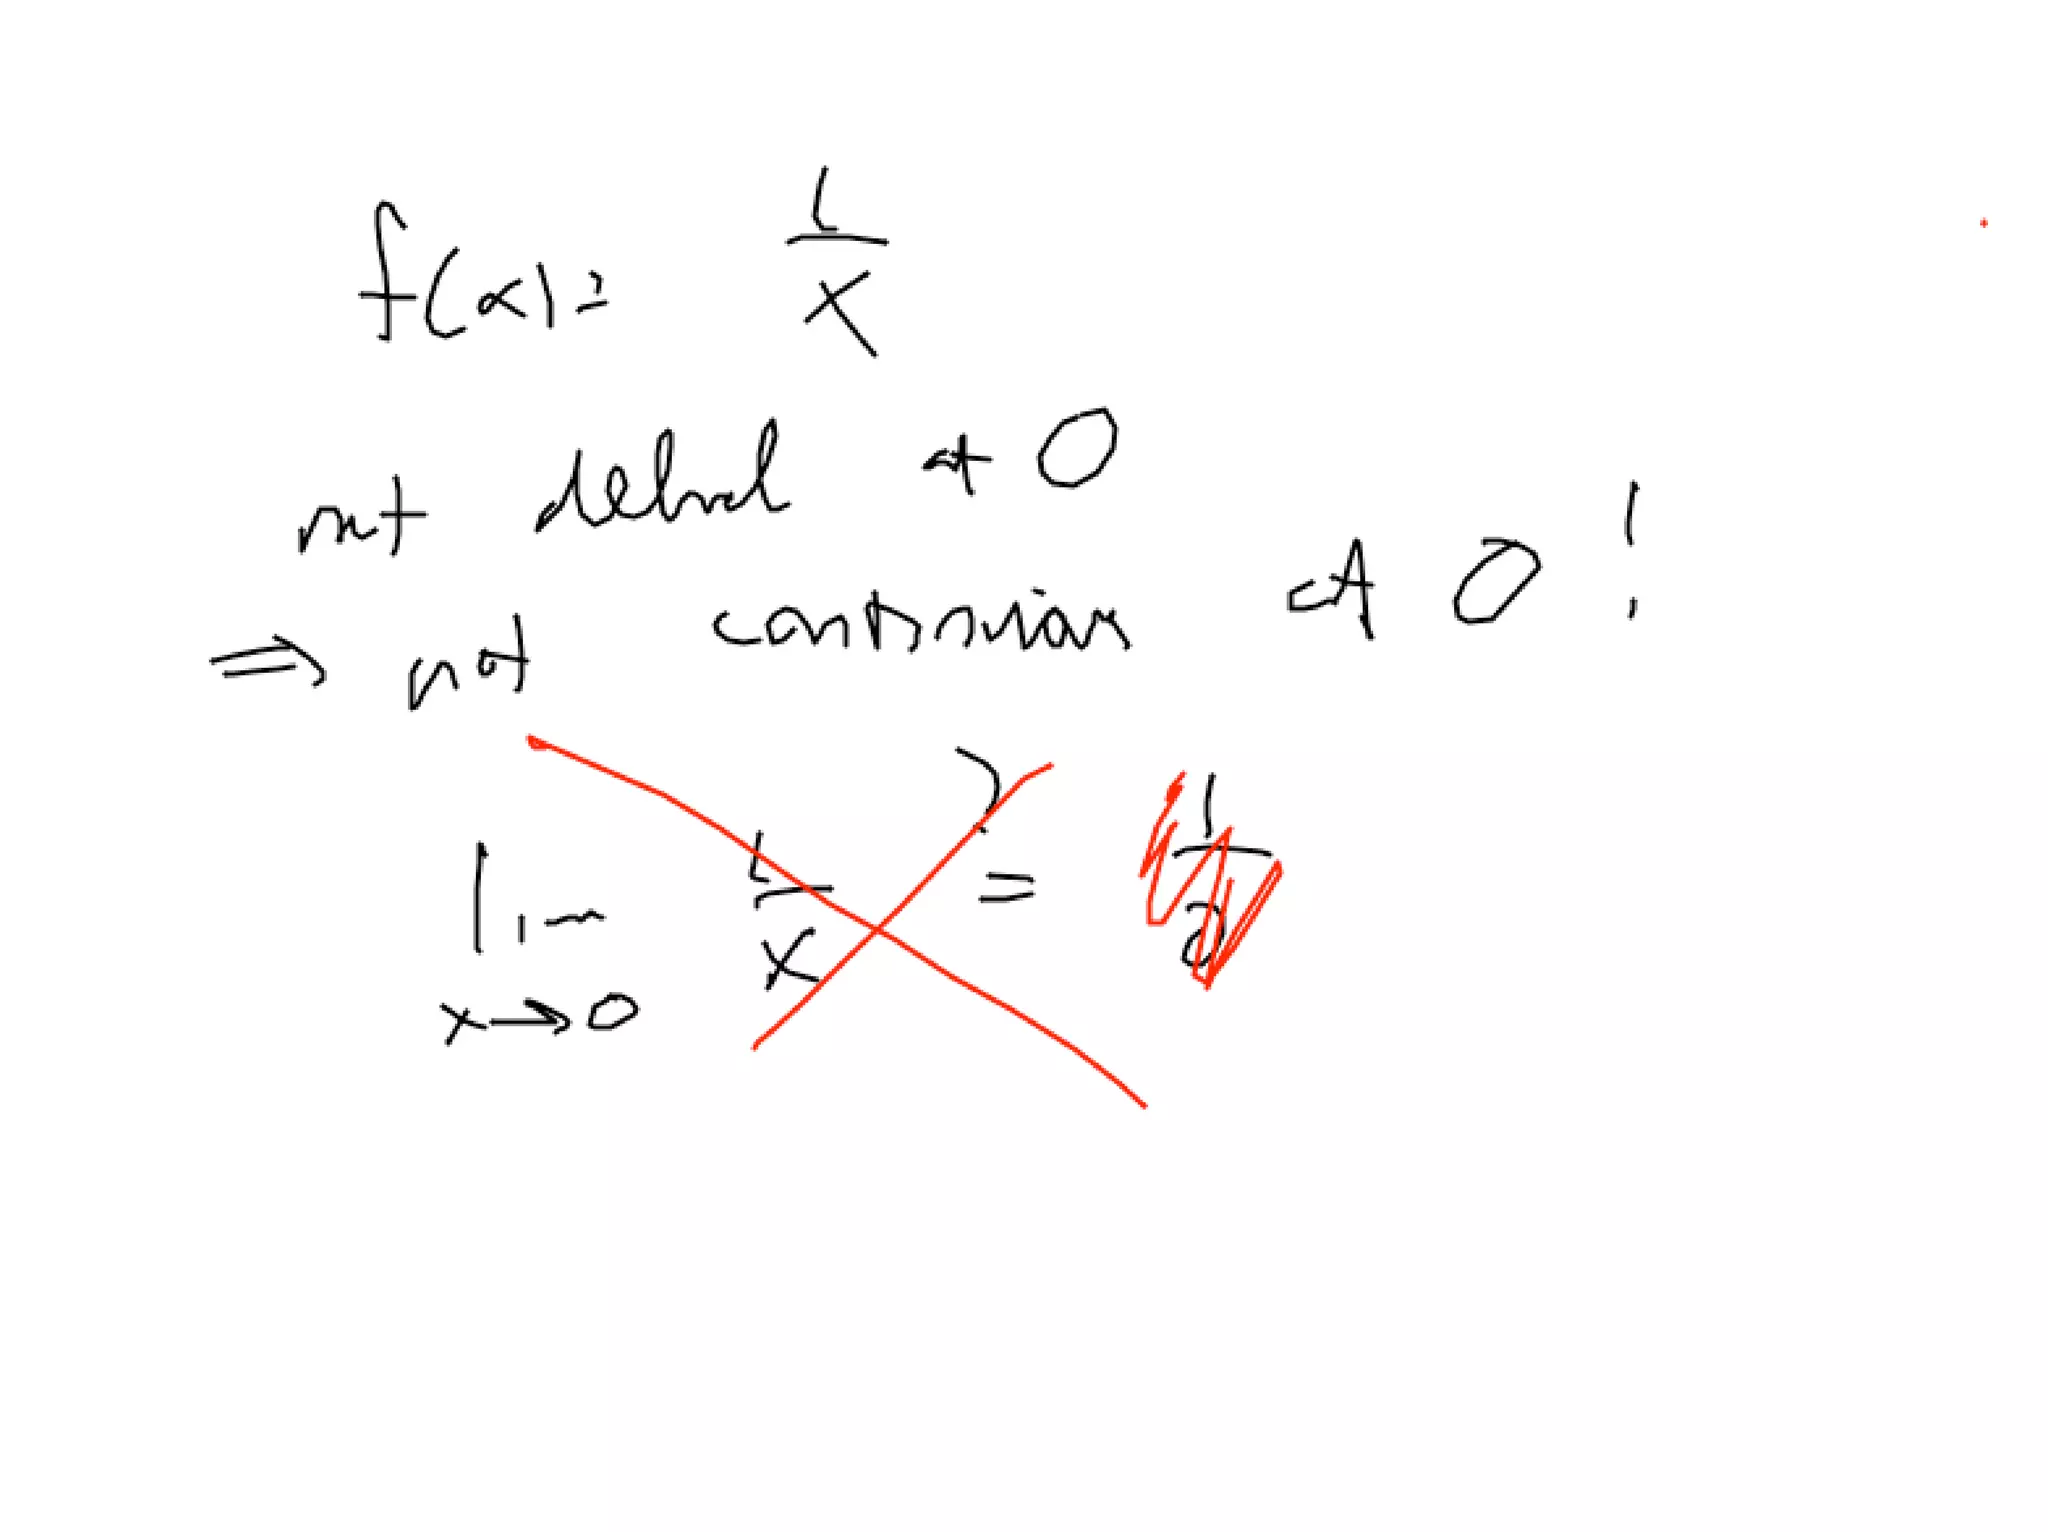 f(x) = 1/x
not defined at 0
⇒ not continuous at 0 !
lim x→0 1/x ?= 1/0